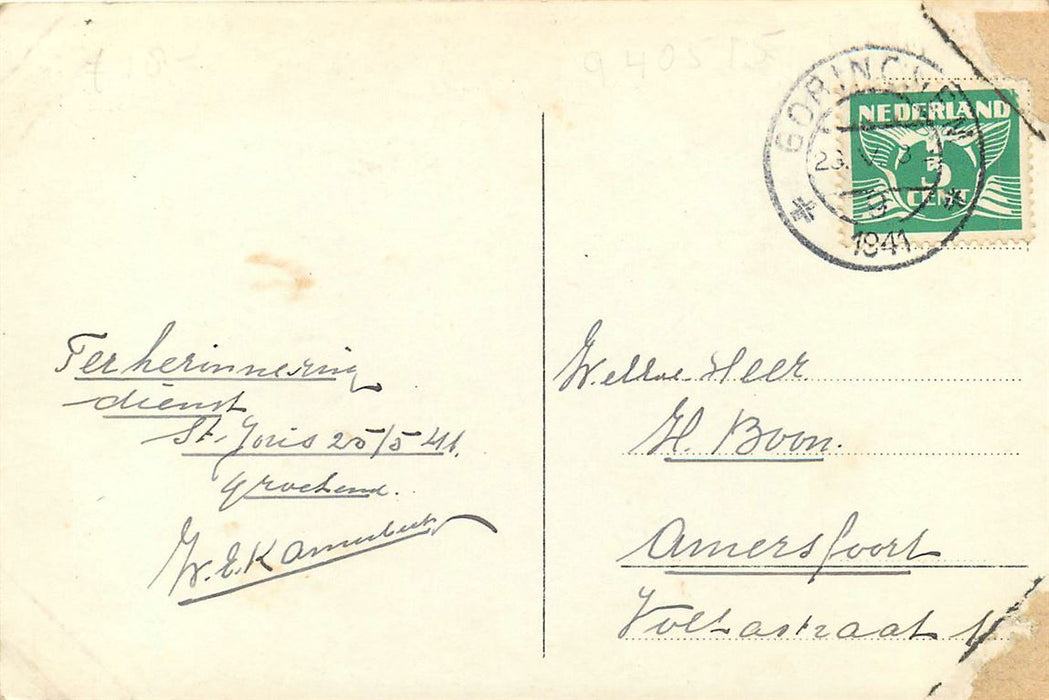 GORINCHEM
23. V. 8
1941
NEDERLAND
5
CENT
Ter herinnering
dienst
St. Joris 25/5 41.
groetend.
W.E.K
Weled. Heer
H. Boon.
Amersfoort
Voltastraat